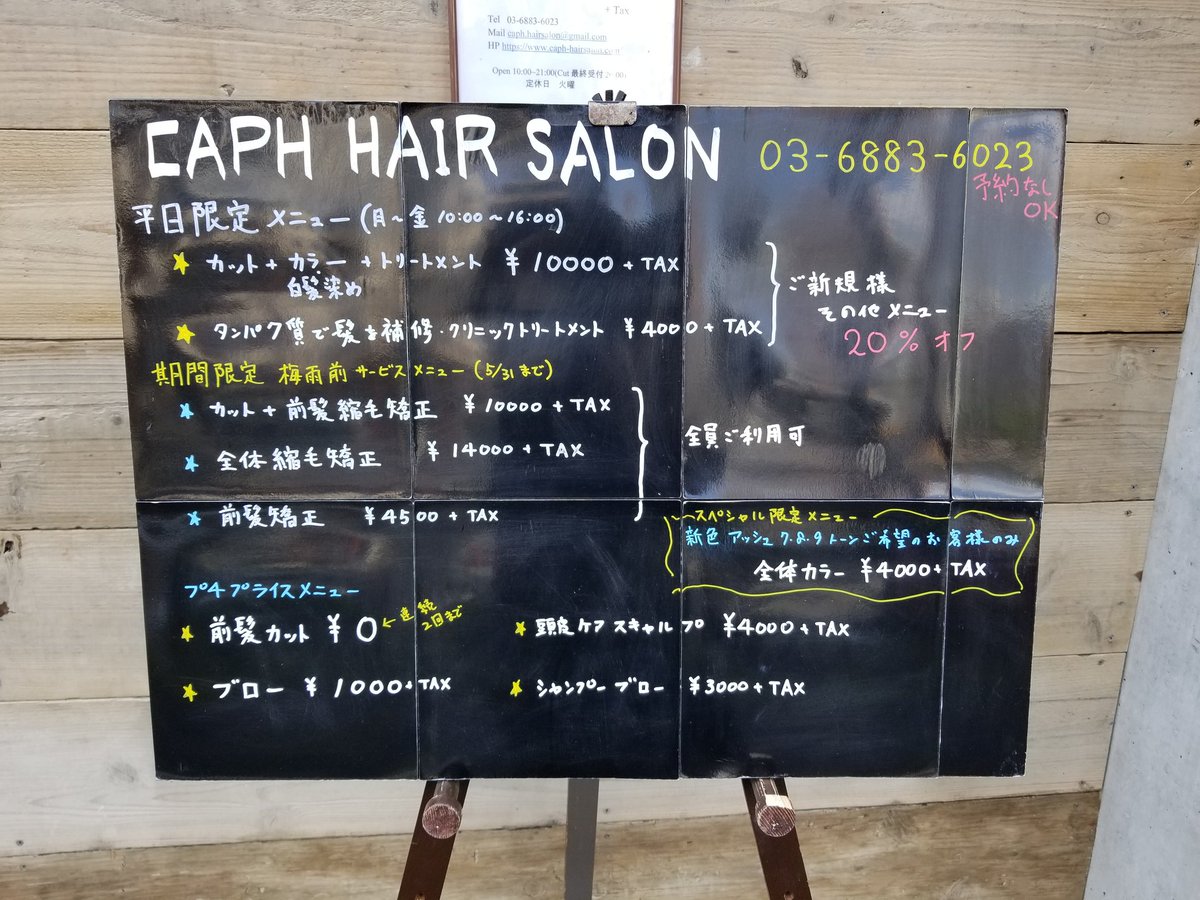 + Tax
Tel 03-6883-6023
Mail caph.hairsalon@gmail.com
HP https://www.caph-hairsalon.com
Open 10:00~21:00(Cut 最終受付 20:00)
定休日 火曜
CAPH HAIR SALON 03-6883-6023
予約なし
OK
平日限定 メニュー (月~金 10:00~16:00)
★ カット + カラー + トリートメント ¥10000 + TAX
白髪染め
★ タンパク質で髪を補修・クリニックトリートメント ¥4000 + TAX
ご新規様
その他メニュー
20% オフ
期間限定 梅雨前 サービスメニュー (5/31まで)
★ カット + 前髪縮毛矯正 ¥10000 + TAX
★ 全体縮毛矯正 ¥14000 + TAX
★ 前髪矯正 ¥4500 + TAX
全員ご利用可
スペシャル限定メニュー
新色 アッシュ 7.8.9トーンご希望のお客様のみ
全体カラー ¥4000 + TAX
プチプライスメニュー
★ 前髪カット ¥0 ← 連続
2回まで
★ 頭皮ケア スキャルプ ¥4000 + TAX
★ ブロー ¥1000 + TAX
★ シャンプー ブロー ¥3000 + TAX